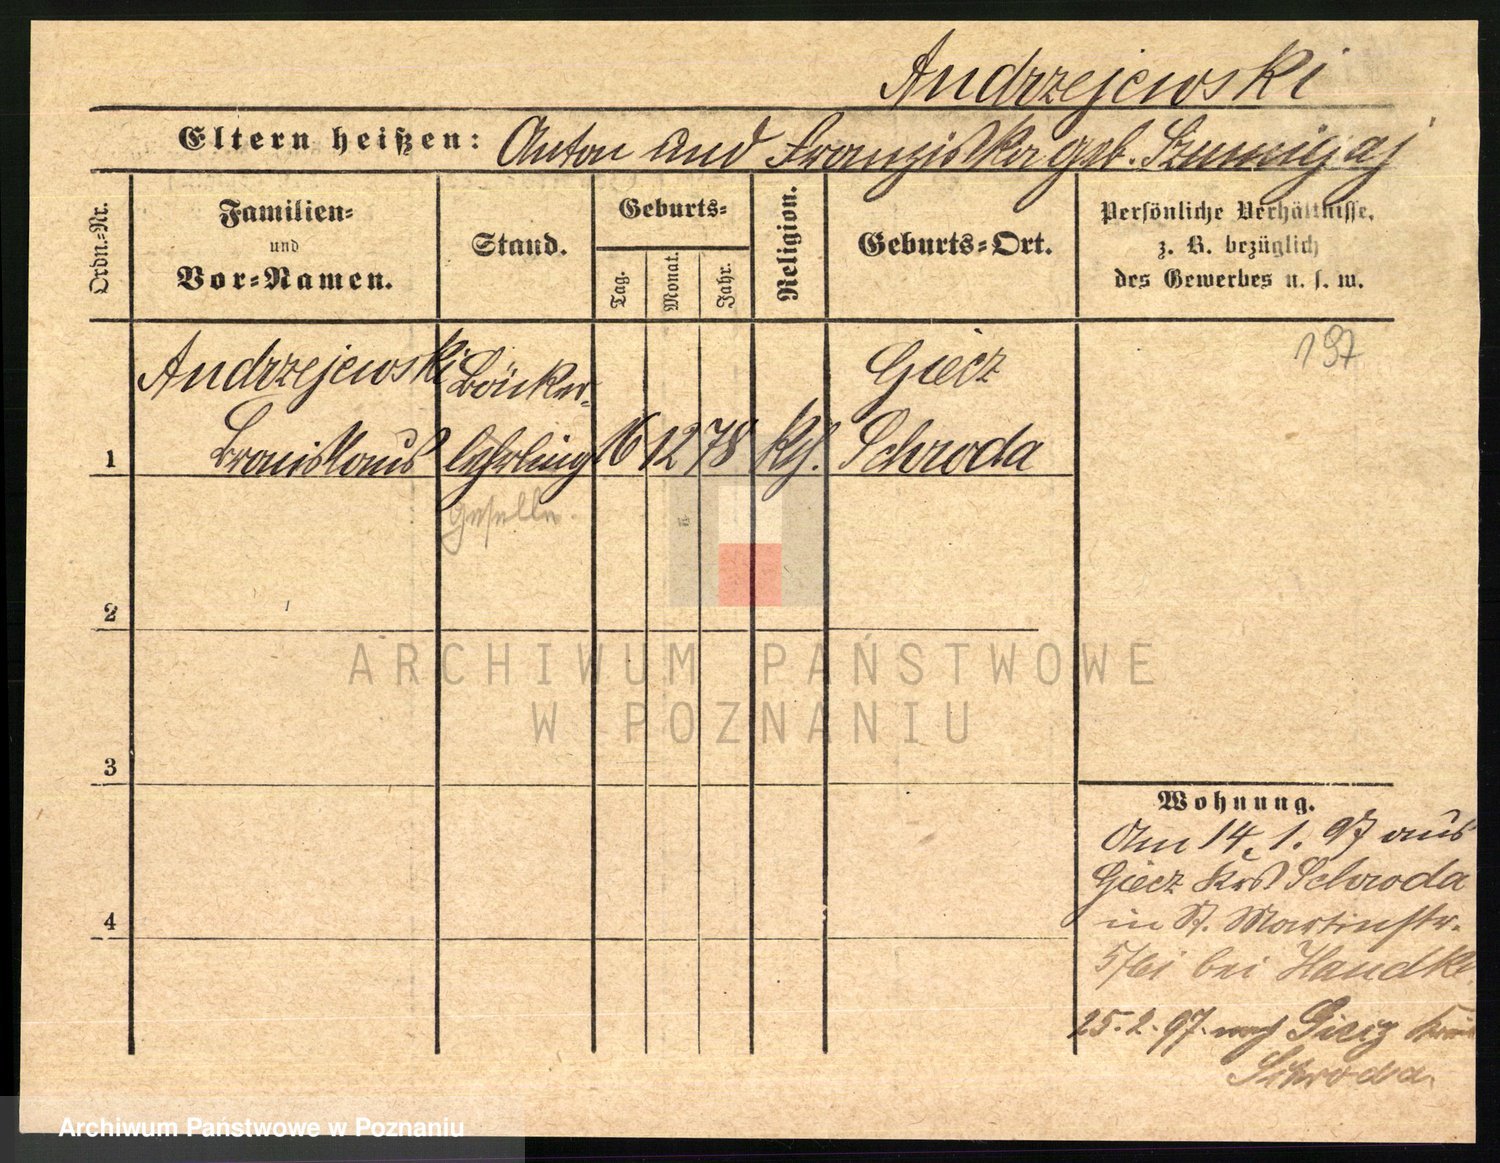 Andrzejewski
Eltern heißen: Anton und Franziska geb. Szumigaj
Ordn.-Nr.
Familien-
und
Vor-Namen.
Stand.
Geburts-
Tag.
Monat.
Jahr.
Religion.
Geburts-Ort.
Persönliche Verhältnisse,
z. B. bezüglich
des Gewerbes u. s. w.
197
Andrzejewski
Bronislaus
Bäcker-
lehrling
Geselle.
16 12 78 kth.
Giecz
Schroda
1
2
3
4
Wohnung.
Am 14. 1. 97 aus
Giecz Krs Schroda
in St. Martinstr.
bei Handke
25. 2. 97. nach Giecz Kreis
Schroda
ARCHIWUM PAŃSTWOWE
W POZNANIU
Archiwum Państwowe w Poznaniu